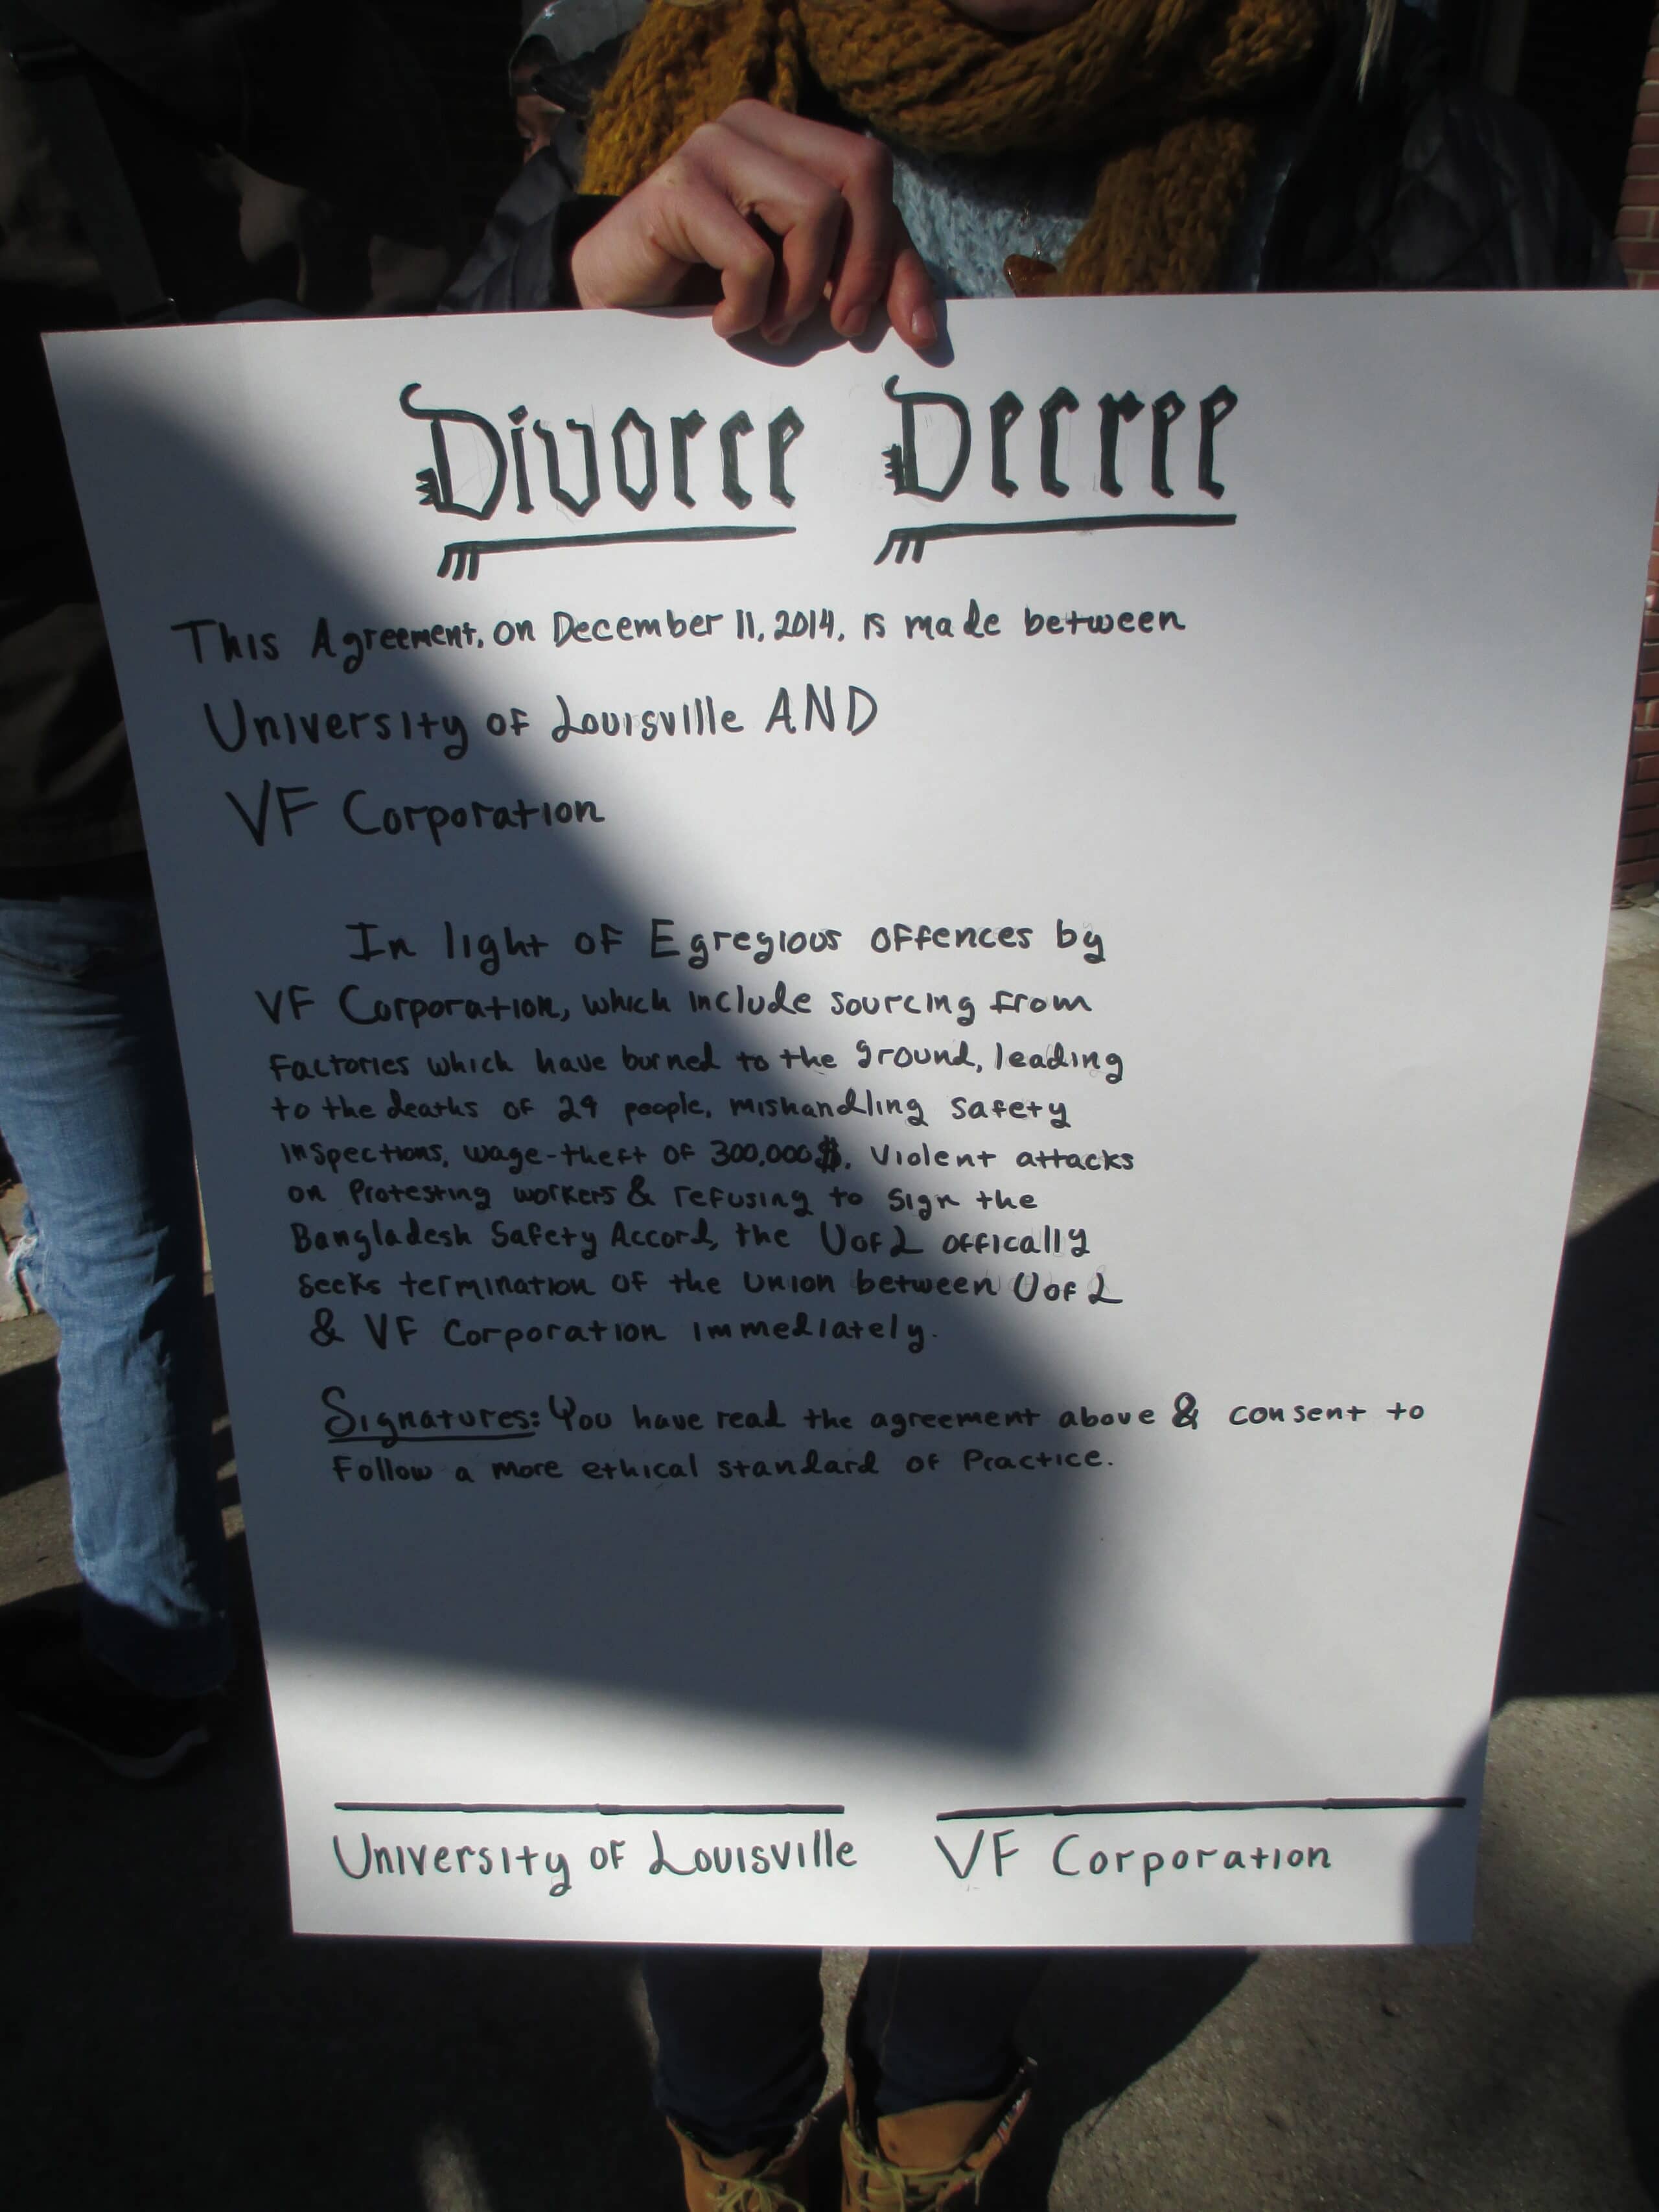 Divorce Decree
This Agreement, on December 11, 2014, is made between
University of Louisville AND
VF Corporation
In light of Egregious offences by
VF Corporation, which include sourcing from
factories which have burned to the ground, leading
to the deaths of 29 people, mishandling safety
inspections, wage-theft of 300,000$, Violent attacks
on Protesting workers & refusing to sign the
Bangladesh Safety Accord, the UofL offically
seeks termination of the union between UofL
& VF Corporation immediately.
Signatures: You have read the agreement above & consent to
follow a more ethical standard of Practice.
University of Louisville VF Corporation